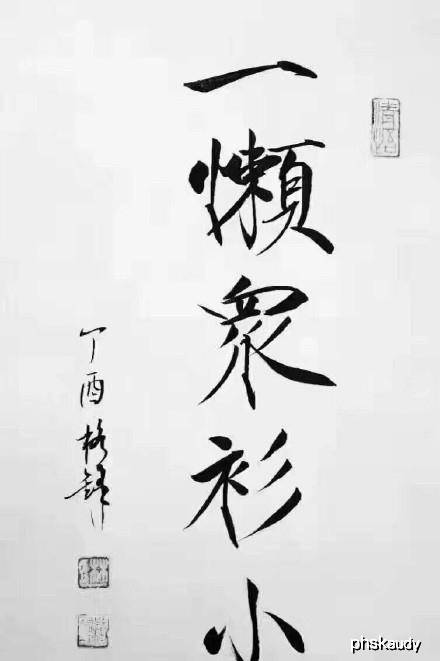 一懶眾衫小
丁酉 格鋒
phskaudy